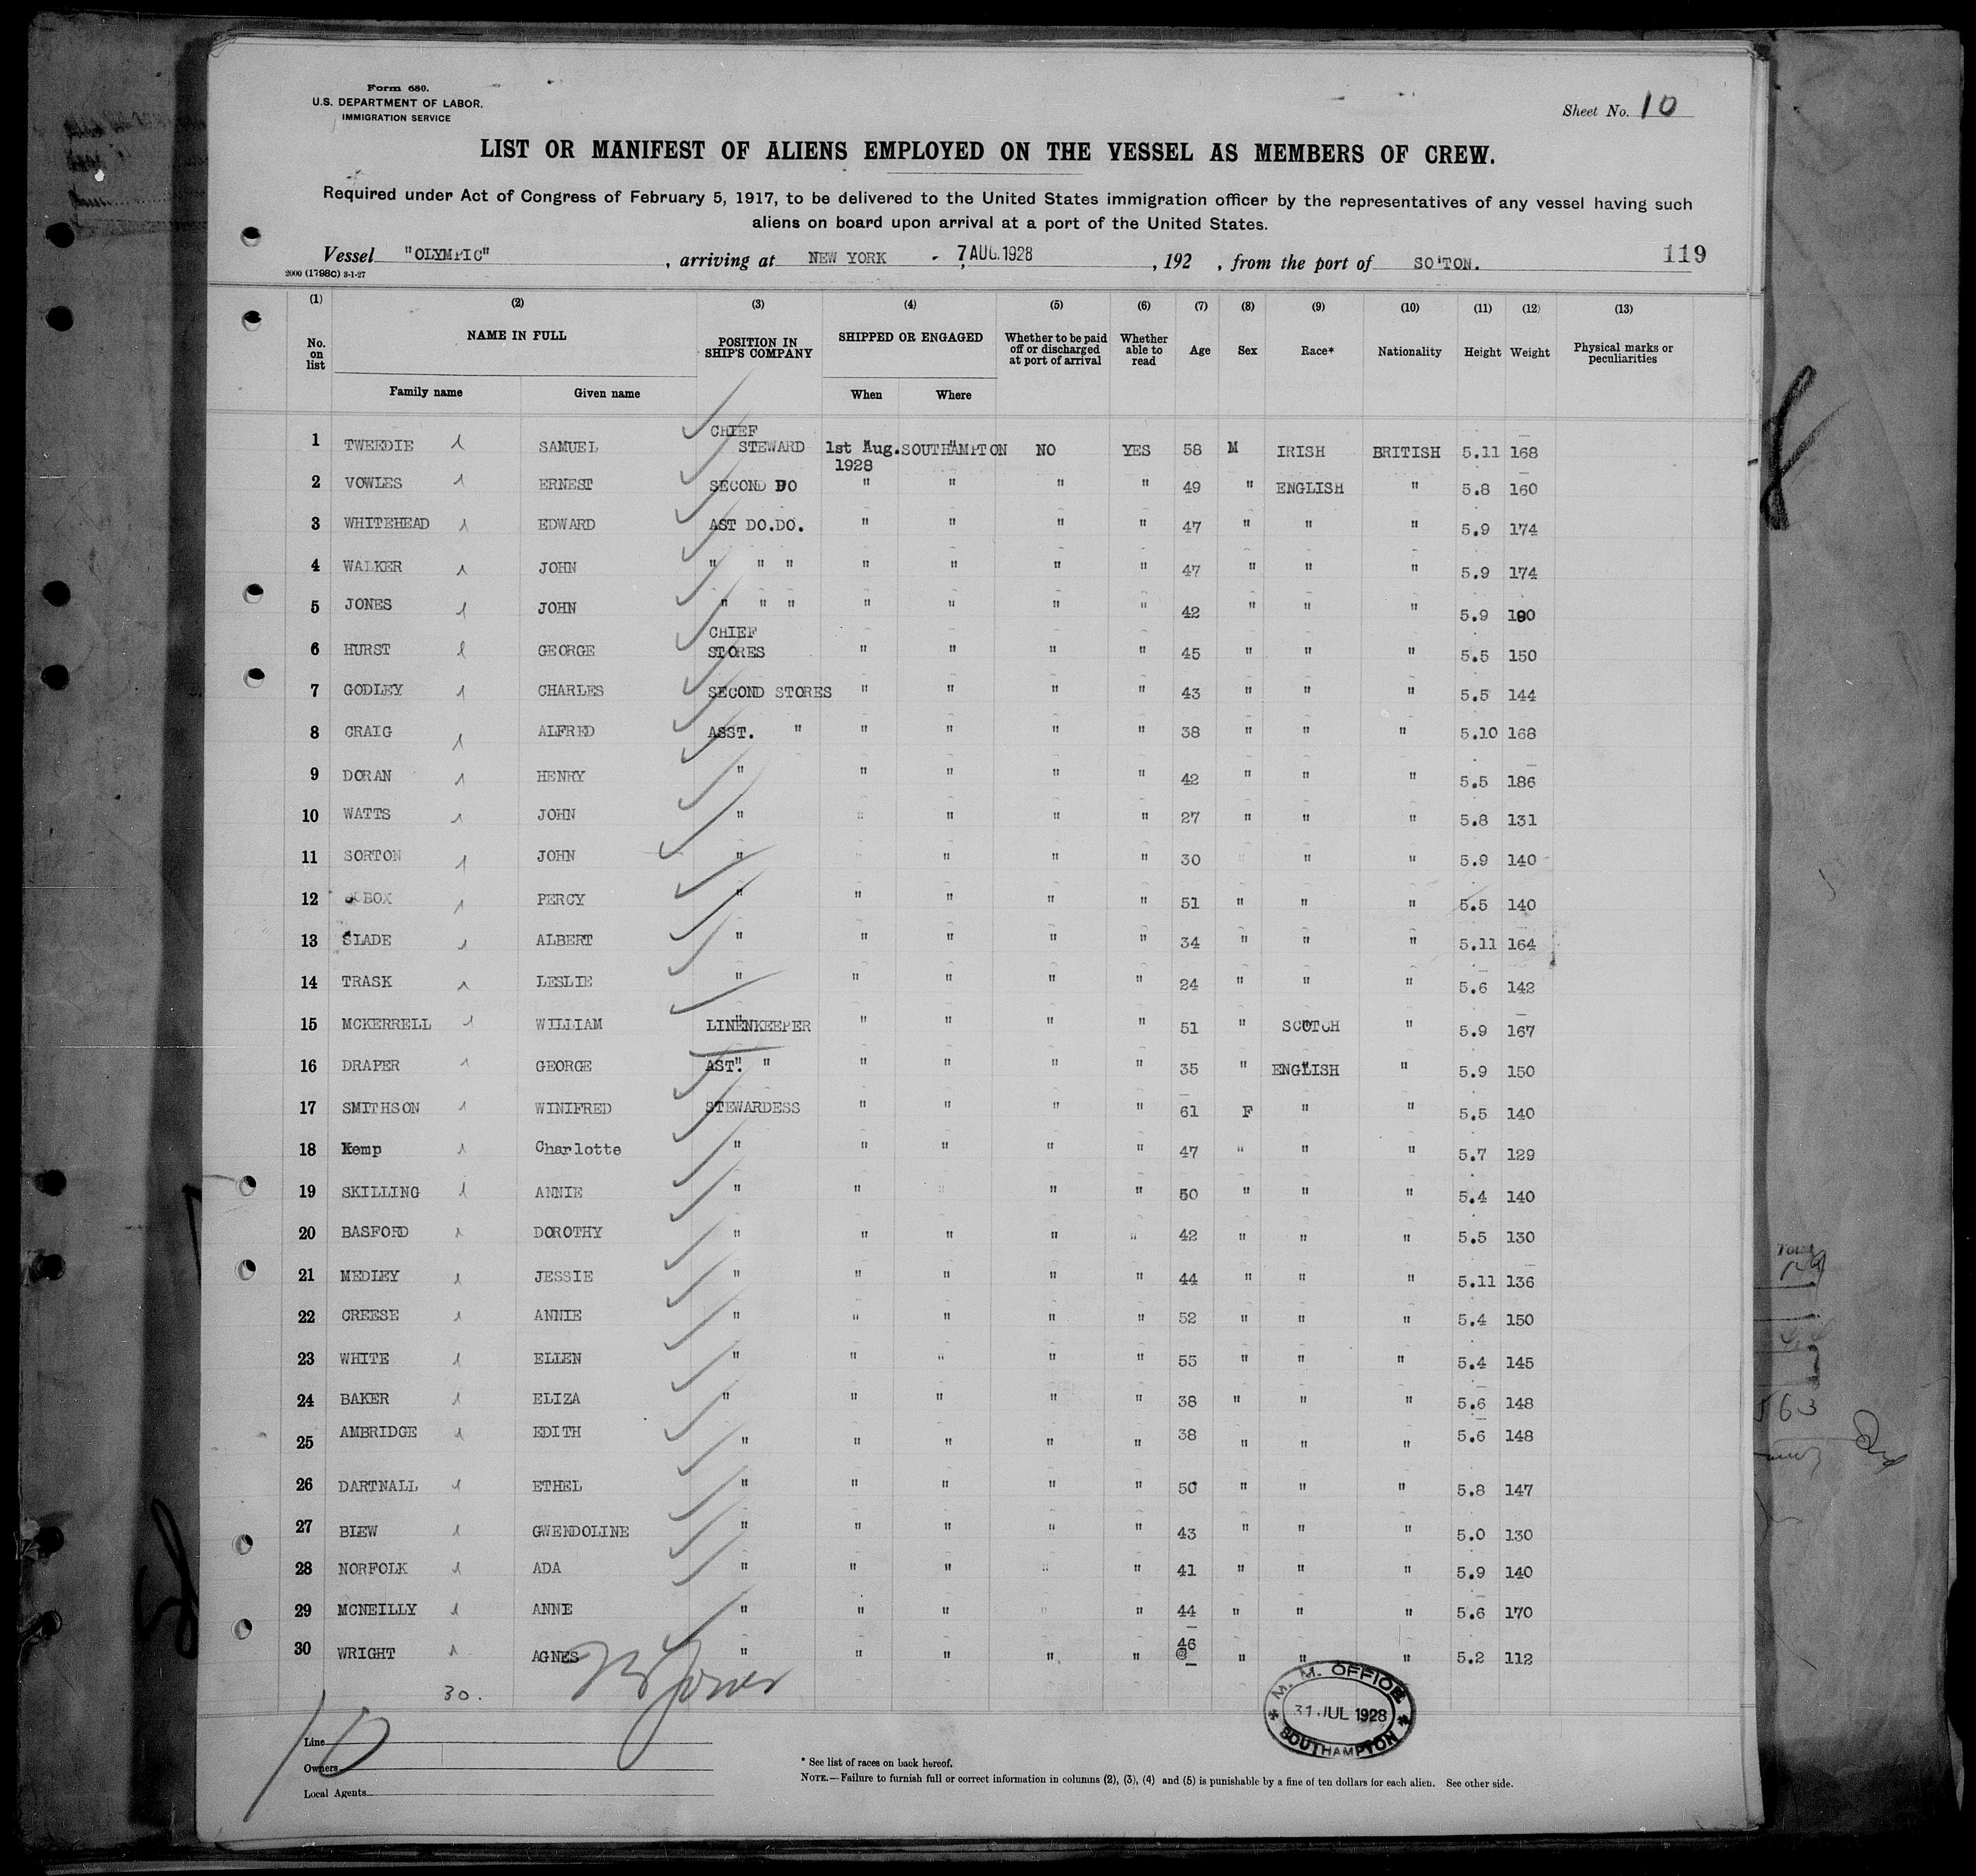 Form 680.
U.S. DEPARTMENT OF LABOR.
IMMIGRATION SERVICE
Sheet No. 10
LIST OR MANIFEST OF ALIENS EMPLOYED ON THE VESSEL AS MEMBERS OF CREW.
Required under Act of Congress of February 5, 1917, to be delivered to the United States immigration officer by the representatives of any vessel having such
aliens on board upon arrival at a port of the United States.
Vessel "OLYMPIC" , arriving at NEW YORK - 7 AUG. 1928 , 192 , from the port of SO'TON. 119
2000 (1798C) 3-1-27
(1) (2) (3) (4) (5) (6) (7) (8) (9) (10) (11) (12) (13)
No. on list NAME IN FULL POSITION IN SHIP'S COMPANY SHIPPED OR ENGAGED Whether to be paid off or discharged at port of arrival Whether able to read Age Sex Race* Nationality Height Weight Physical marks or peculiarities
Family name Given name When Where
1 TWEEDIE SAMUEL CHIEF STEWARD 1st Aug. 1928 SOUTHAMPTON NO YES 58 M IRISH BRITISH 5.11 168
2 VOWLES ERNEST SECOND DO " " " " 49 " ENGLISH " 5.8 160
3 WHITEHEAD EDWARD AST DO.DO. " " " " 47 " " " 5.9 174
4 WALKER JOHN " " " " " " " 47 " " " 5.9 174
5 JONES JOHN " " " " " " " 42 " " " 5.9 190
6 HURST GEORGE CHIEF STORES " " " " 45 " " " 5.5 150
7 GODLEY CHARLES SECOND STORES " " " " 43 " " " 5.5 144
8 CRAIG ALFRED ASST. " " " " " 38 " " " 5.10 168
9 DORAN HENRY " " " " " 42 " " " 5.5 186
10 WATTS JOHN " " " " " 27 " " " 5.8 131
11 SORTON JOHN " " " " " 30 " " " 5.9 140
12 BOX PERCY " " " " " 51 " " " 5.5 140
13 SLADE ALBERT " " " " " 34 " " " 5.11 164
14 TRASK LESLIE " " " " " 24 " " " 5.6 142
15 MCKERRELL WILLIAM LINENKEEPER " " " " 51 " SCOTCH " 5.9 167
16 DRAPER GEORGE AST. " " " " " 35 " ENGLISH " 5.9 150
17 SMITHSON WINIFRED STEWARDESS " " " " 61 F " " 5.5 140
18 Kemp Charlotte " " " " " 47 " " " 5.7 129
19 SKILLING ANNIE " " " " " 50 " " " 5.4 140
20 BASFORD DOROTHY " " " " " 42 " " " 5.5 130
21 MEDLEY JESSIE " " " " " 44 " " " 5.11 136
22 CREESE ANNIE " " " " " 52 " " " 5.4 150
23 WHITE ELLEN " " " " " 55 " " " 5.4 145
24 BAKER ELIZA " " " " " 38 " " " 5.6 148
25 AMBRIDGE EDITH " " " " " 38 " " " 5.6 148
26 DARTNALL ETHEL " " " " " 50 " " " 5.8 147
27 BLEW GWENDOLINE " " " " " 43 " " " 5.0 130
28 NORFOLK ADA " " " " " 41 " " " 5.9 140
29 MCNEILLY ANNE " " " " " 44 " " " 5.6 170
30 WRIGHT AGNES " " " " " 46 " " " 5.2 112
30.
10
M. M. OFFICE
31 JUL 1928
SOUTHAMPTON
Line
Owners
Local Agents
* See list of races on back hereof.
NOTE.—Failure to furnish full or correct information in columns (2), (3), (4) and (5) is punishable by a fine of ten dollars for each alien. See other side.
Total
563